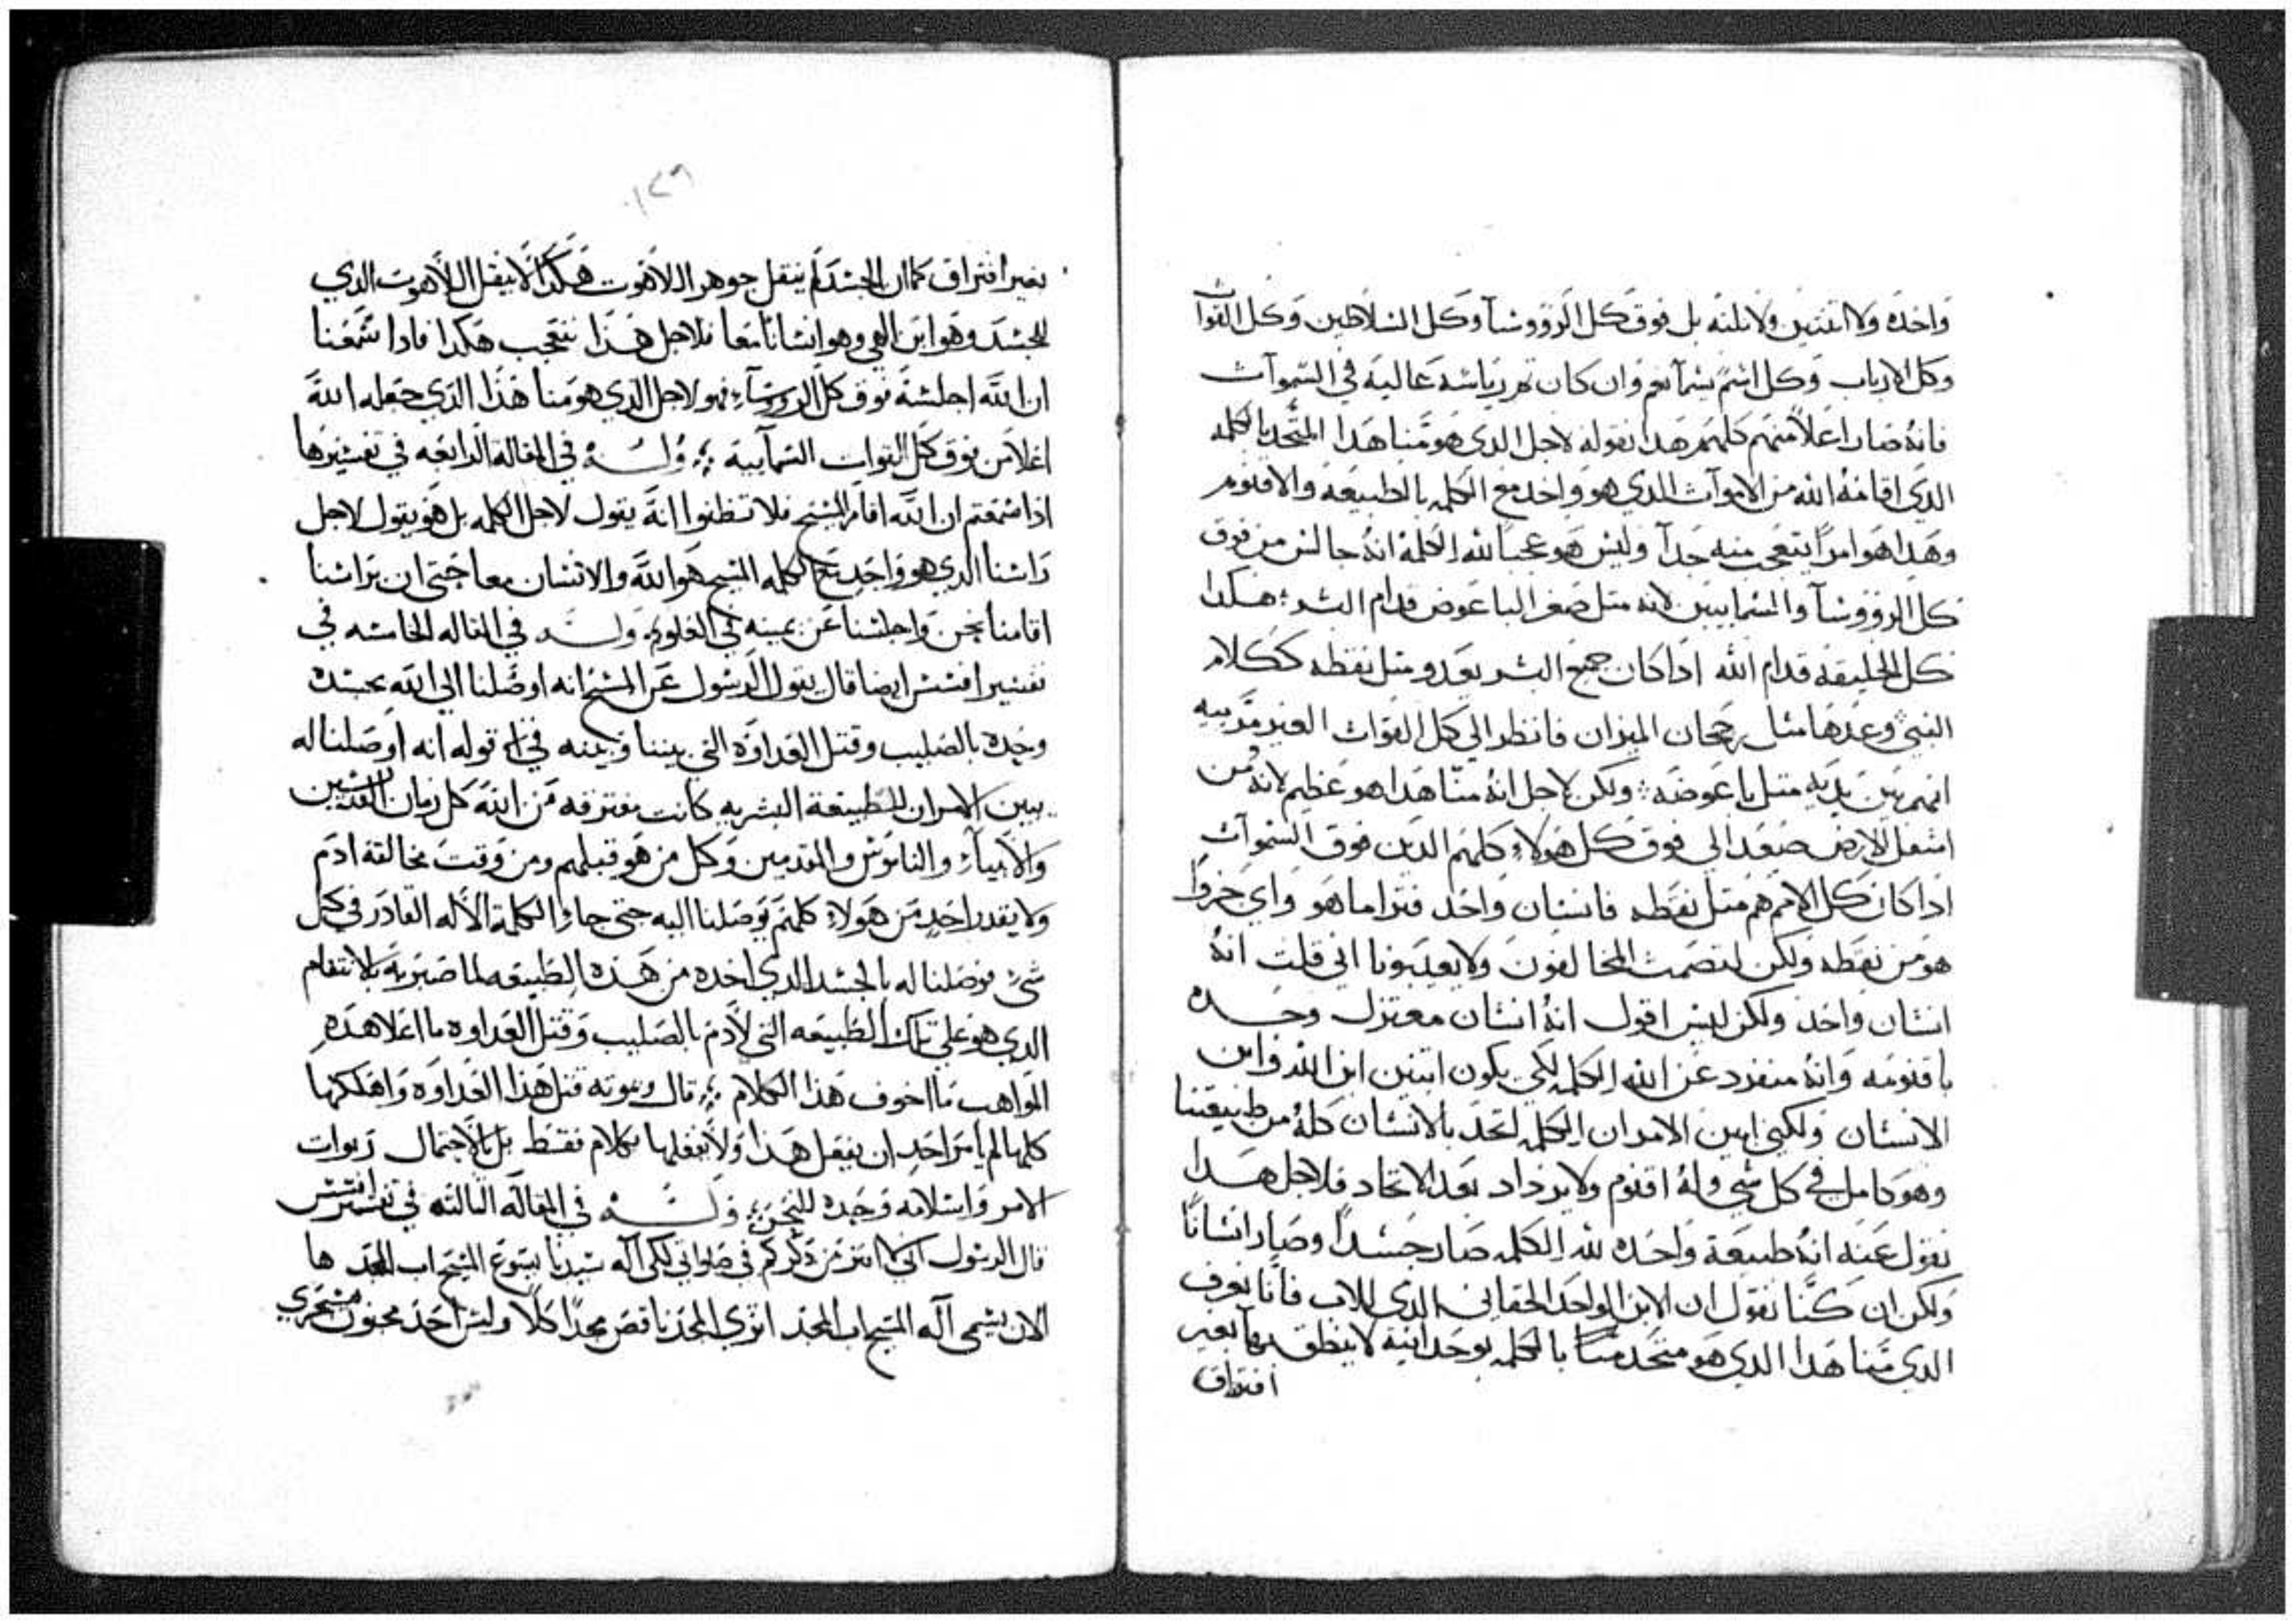 واحده ولا اتنتين ولا تلته بل فوق كل الرووسآ وكل السلاطين وكل القوات
وكل الارباب وكل اسم يسمآ نعم وان كان تم رياسه عاليه في السموآت
فانه صار اعلا منهم كلهم هدا نقوله لاجل الدي هو منا هدا المتحد بالكلمه
الدي اقامه الله من الاموآت الدي هو واحد مع الكلمه بالطبيعه والاقنوم
وهدا هو امرا يتعجب منه جدآ وليس هو عجبا لله الكلمه انه جالس من فوق
كل الرووسآ والسمايين لانه متل صغر الباعوض قدام البشر هكدا
كل الخليقه قدام الله ادا كان جميع البشر يعدو متل نقطه ككلام
النبي وعدها متل رجحان الميزان فانظر الي كل القوات الغير مرييه
انهم بين يديه متل باعوضه ولكن لاجل انه منا هدا هو عظيم لانه من
اسفل الارض صعد الي فوق كل هولاء كلهم الدين فوق السموآت
ادا كان كل الامم هم متل نقطه فانسان واحد فترا ما هو واي جزوا
هو من نقطه ولكن لتصمت المخالفون ولا يعيبونا اني قلت انه
انسان واحد ولكن ليس اقول انه انسان معتزل وحده
باقنومه وانه منفرد عن الله الكلمه لكي يكون اتنين ابن الله وابن
الانسان ولكني ابين الامر ان الكلمه اتحد بالانسان كله من طبيعتنا
وهو كامل في كل شي وله اقنوم ولا يزداد بعد الاتحاد فلاجل هدا
نقول عنه انه طبيعة واحده لله الكلمه صار جسدا وصار انسانا
ولكن ان كنا نقول ان الابن الواحد الحقاني الدي للاب فانا نعرف
الدي منا هدا الدي هو متحد منا بالكلمه بوحدانية لا ينطق بهآ بغير
افتراق
١٤٦
بغير افتراق كما ان الجسد لم ينقل جوهر اللاهوت هكدا لا ينقل اللاهوت الدي
للجسد وهو ابن الهي وهو انسانا معا فلاجل هدا نتعجب هكدا فادا سمعنا
ان الله اجلسه فوق كل الرووسآء فهو لاجل الدي هو منا هدا الدي جعله الله
اعلا من فوق كل القوات السمآيية وله في المقاله الرابعه في تفسيرها
ادا سمعتم ان الله اقام المسيح فلا تظنوا انه يقول لاجل الكلمه بل هو يقول لاجل
راسنا الدي هو واحد مع الكلمه المسيح هو الله والانسان معا حتي ان براسنا
اقامنا نحن واجلسنا عن يمينه في العلو وله في المقاله الخامسه في
تفسير افسس ايضا قال يقول الرسول عن المسيح انه اوصلنا الي الله بجسده
وحده بالصليب وقتل العداوه التي بيننا وبينه في قوله انه اوصلنا له
يبين الامر ان للطبيعة البشريه كانت مفترقه من الله كل زمان القديسين
والانبيآء والناموس والمقدمين وكل من هو قبلهم ومن وقت مخالفة ادم
ولا يقدر احد من هولاء كلهم يوصلنا اليه حتي جاء الكلمة الاله القادر في كل
شي فوصلنا له بالجسد الدي اخده من هده الطبيعه لما ضربه بالانتقام
الدي هو علي تلك الطبيعه التي لادم بالصليب وقتل العداوه ما اعلا هده
المواهب ما اخوف هدا الكلام قال وبموته قتل هدا العداوه واهلكها
كلها لم يامر احد ان يفعل هدا ولا يفعلها بكلام فقط بل بالاحتمال
الامر واسلامه وحده للنجس وله في المقاله التالته في تفسير افسس
قال الرسول اني لا افتر من دكركم في صلواتي لكي اله سيدنا يسوع المسيح اب المجد ها
الان يسمي اله المسيح اب المجد اتري المجد ناقص مجدا كلا وليس احد مجنون